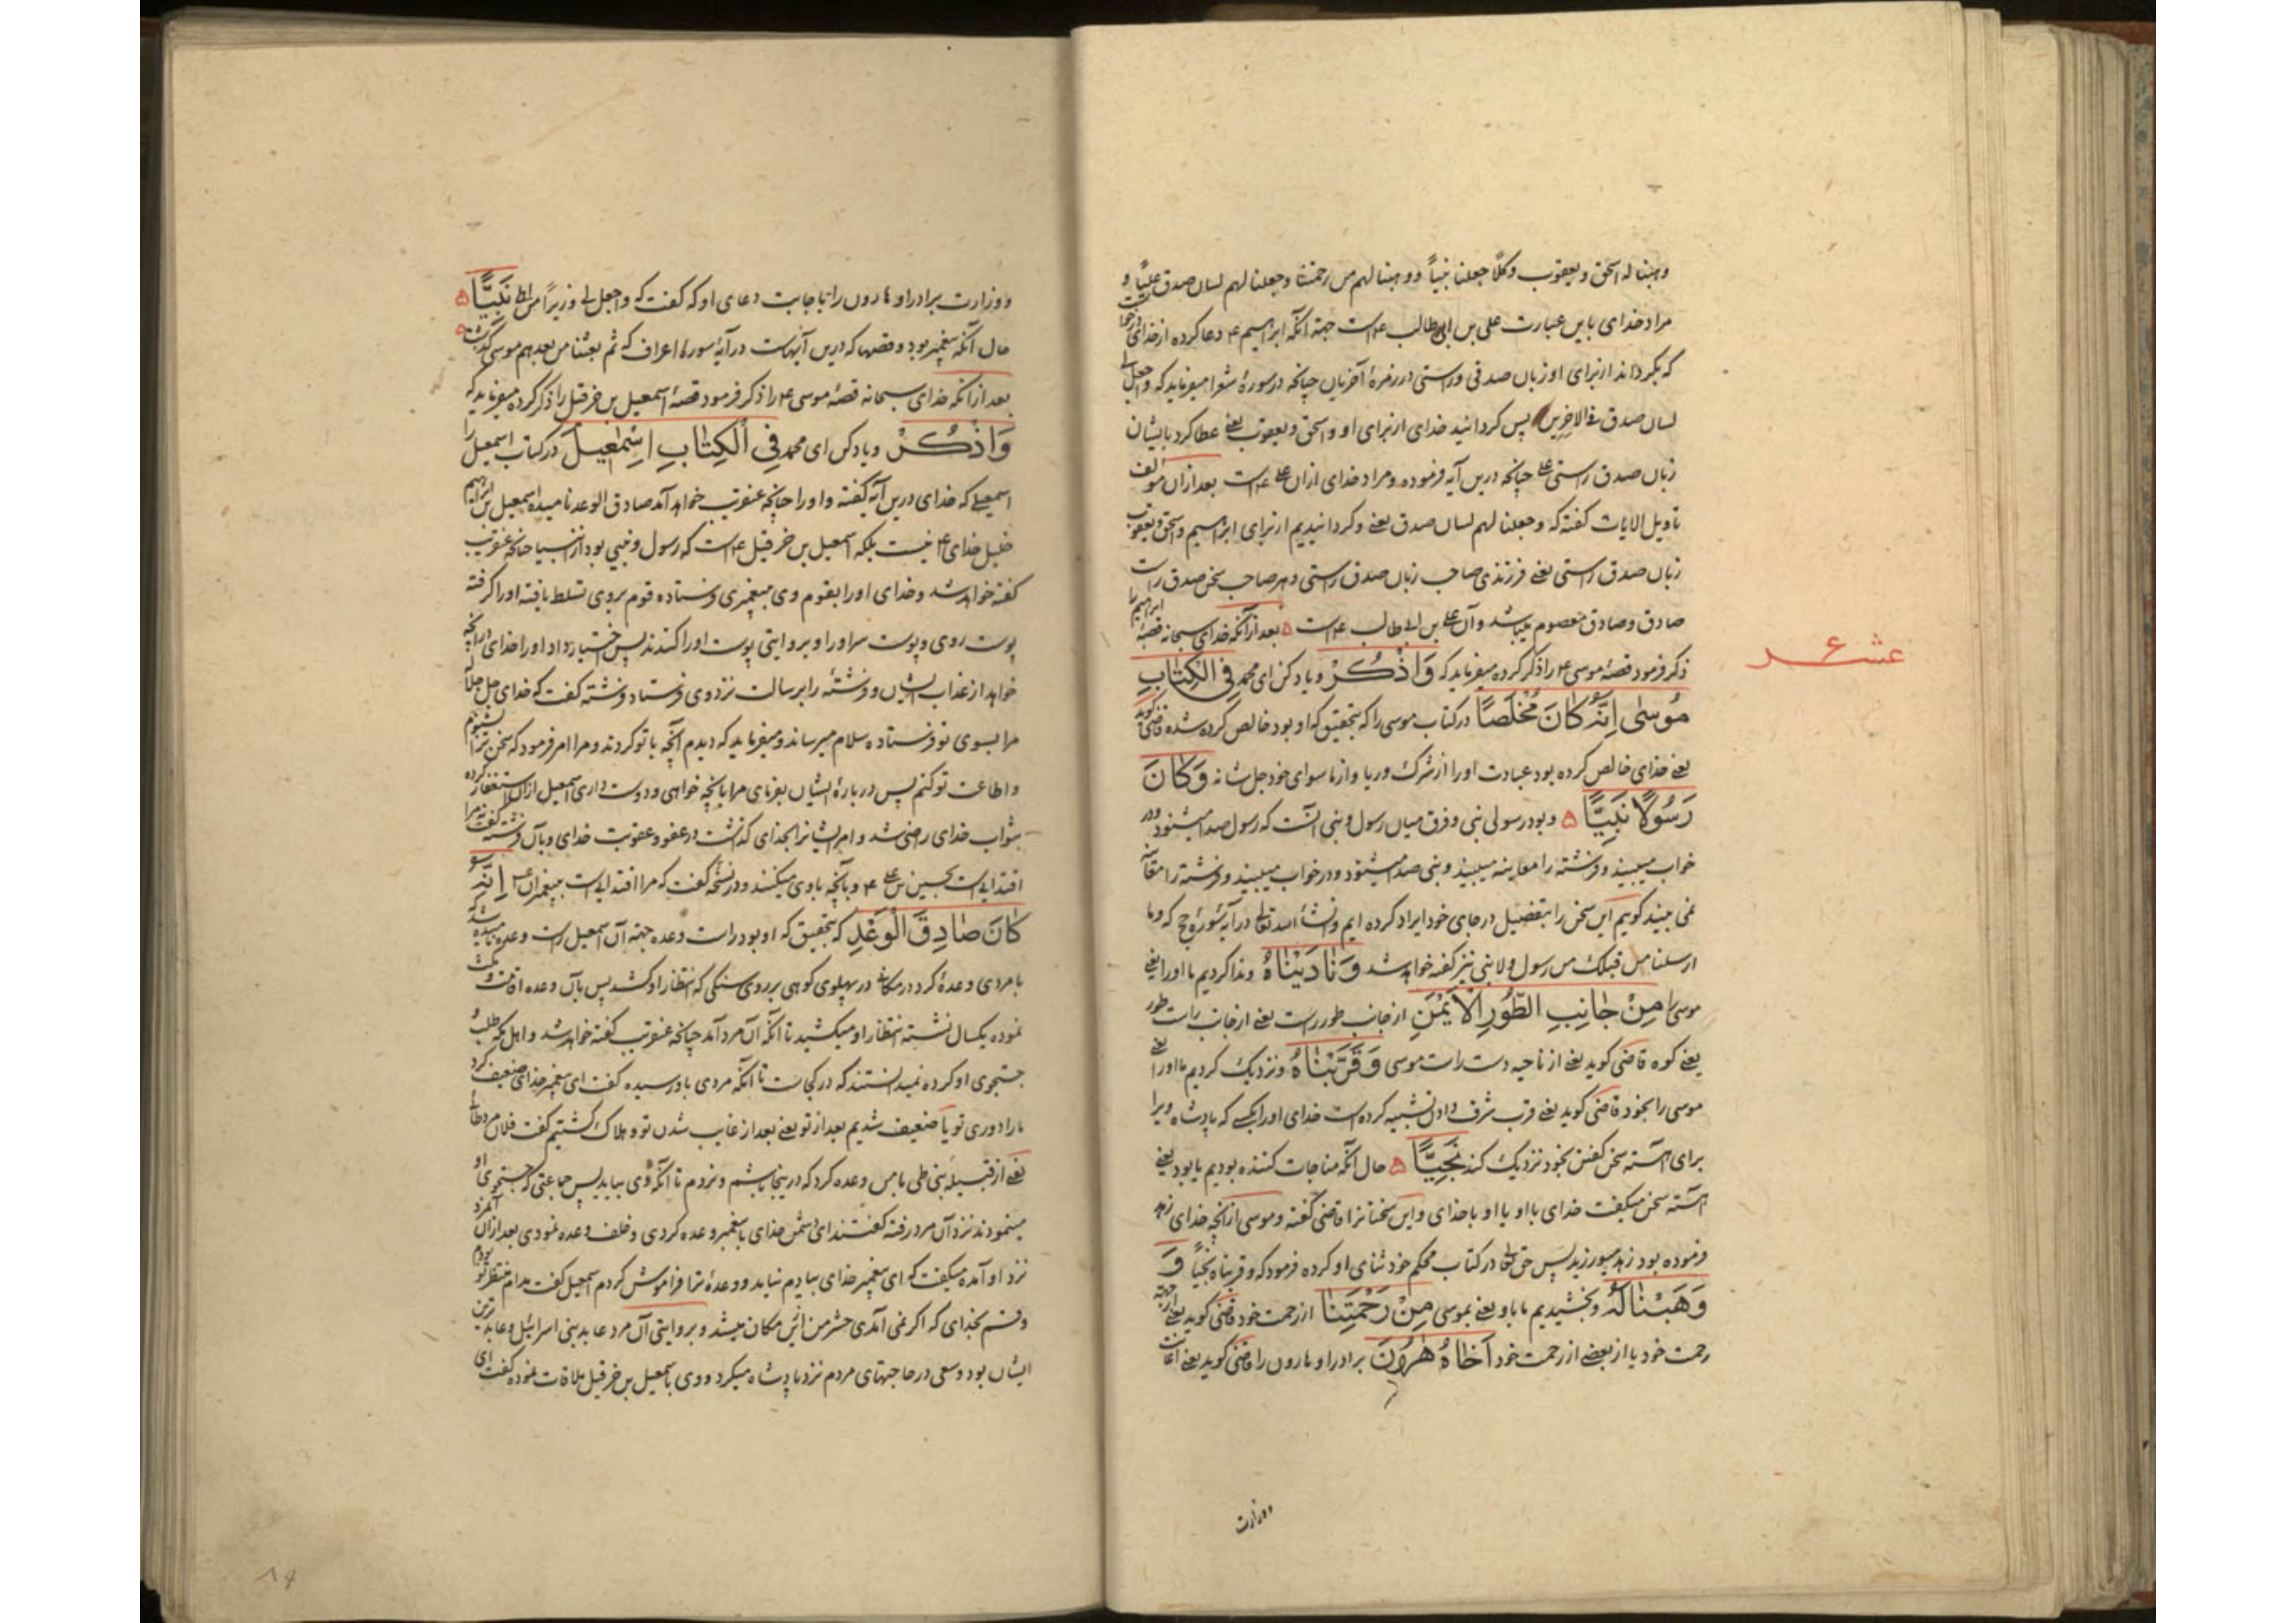 وهبنا له اسحق ویعقوب وکلًا جعلنا نبیاً ووهبنا لهم من رحمتنا وجعلنا لهم لسان صدق علیًّا و
مراد خدای باین عبارت علی بن ابی طالب ع است جهة آنکه ابراهیم ع دعا کرده از خدای
که بکرداند از برای او زبان صدقی وراستی در زمرهٔ آخریان چنانچه در سورهٔ شعرا میفرماید که واجعل لی
لسان صدق فی الاخرین پس کردانید خدای از برای او واسحق ویعقوب یعنی عطا کرد بایشان
زبان صدق راستی علی چنانچه درین آیه فرموده ومراد خدای ازان علی ع است بعد ازان مولف
تاویل الایات کفته که وجعلنا لهم لسان صدق یعنی وکردانیدیم از برای ابراهیم واسحق ویعقوب
زبان صدق راستی یعنی فرزندی صاحب زبان صدق راستی وهر صاحب سخن صدق راست
صادق وصادق معصوم میباشد وآن علی بن ابی طالب ع است بعد ازآنکه خدای سبحانه قصهٔ ابراهیم را
ذکر فرمود قصهٔ موسی ع را ذکر کرده میفرماید که وَاذْكُرْ ویاد کن ای محمد فِی الْکِتَابِ
عشر ع
مُوسٰی اِنَّهُ کَانَ مُخْلَصًا در کتاب موسی را که بتحقیق که او بود خالص کرده شده قاضی کوید
یعنی خدای خالص کرده بود عبادت اورا از شرک وریا واز ما سوای خود جل شانه وَکَانَ
رَسُولًا نَبِیًّا وبود رسولی نبی وفرق میان رسول ونبی آنست که رسول صدا میشنود ودر
خواب میبیند وفرشته را معاینه میبیند ونبی صدا میشنود ودر خواب میبیند وفرشته را معاینه
نمی بیند کویم این سخن را بتفضیل در جای خود ایراد کرده ایم وانشاء الله تعالی در آیه سورهٔ حج که وما
ارسلنا من قبلک من رسول ولا نبی نیز کفته خواهد شد وَنَادَیْنَاهُ وندا کردیم ما اورا یعنی
موسی را مِنْ جَانِبِ الطُّورِ الْاَیْمَنِ از جانب طور راست یعنی از جانب راست طور
یعنی کوه قاضی کوید یعنی از ناحیه دست راست موسی وَقَرَّبْنَاهُ ونزدیک کردیم ما اورا یعنی
موسی را بخود قاضی کوید یعنی قرب شرف دادن تشبیه کرده است خدای اورا بکسی که پادشاه ویرا
برای آهسته سخن کفتن بخود نزدیک کند نَجِیًّا حال آنکه مناجات کننده بودیم یا بود یعنی
آهسته سخن میکفت خدای با او یا او با خدای واین سخنانرا قاضی کفته وموسی ازآنچه خدای زهد
فرموده بود زهد میورزید پس حق تعالی در کتاب محکم خود ثنای او کرده فرمود که وقربناه نجیًا وَ
وَهَبْنَا لَهُ وبخشیدیم ما باو یعنی بموسی مِنْ رَحْمَتِنَا از رحمت خود قاضی کوید یعنی از جهة
رحمت خود یا از بعضی از رحمت خود اَخَاهُ هٰرُونَ برادر او هارون را قاضی کوید یعنی اعانت
ووزارت
ووزارت برادر او هارون را باجابت دعای او که کفت که واجعل لی وزیرًا من اهلی نَبِیًّا
حال آنکه پیغمبر بود وقصها که درین آیهاست در آیهٔ سورهٔ اعراف که ثم بعثنا من بعدهم موسی کذشت
بعد ازانکه خدای سبحانه قصهٔ موسی ع را ذکر فرمود قصهٔ اسمعیل بن خرقیل را ذکر کرده میفرماید که
وَاذْکُرْ ویاد کن ای محمد فِی الْکِتَابِ اِسْمٰعِیلَ در کتاب اسمعیل را
اسمعیلی که خدای درین آیه کفته واورا چنانچه عنقریب خواهد آمد صادق الوعد نامیده اسمعیل بن ابراهیم
خلیل خدای ع نیست بلکه اسمعیل بن خرقیل ع است که رسول ونبی بود از انبیا چنانچه عنقریب
کفته خواهد شد وخدای اورا بقوم وی به پیغمبری فرستاده قوم بروی تسلط یافته اورا کرفته
پوست روی وپوست سر اورا وبروایتی پوست اورا کندند پس اختیار داد اورا خدای درانچه
خواهد از عذاب ایشان وفرشتهٔ را برسالت نزد وی فرستاد وفرشته کفت که خدای جل جلاله
مرا بسوی تو فرستاده سلام میرساند ومیفرماید که دیدم آنچه با تو کردند ومرا امر فرمود که سخن ترا بشنوم
واطاعت تو کنم پس در بارهٔ ایشان بفرمای مرا بانچه خواهی ودوست داری اسمعیل ازان استغفار کرده
بثواب خدای راضی شد وامر ایشانرا بخدای کذاشت در عفو وعقوبت خدای وبآن فرشته کفت که مرا
اقتدایی است بحسین بن علی ع وبآنچه باوی میکنند ودر نسخهٔ کفت که مرا اقتدایی است به پیغمبران ع اِنَّهُ
کَانَ صَادِقَ الْوَعْدِ که بتحقیق که او بود راست وعده جهة آن اسمعیل راست وعده نامیده شد که
با مردی وعدهٔ کرد در مکانی در پهلوی کوهی بر روی سنکی که انتظار او کشد پس بآن وعده اقامت
نموده یکسال نشسته انتظار او میکشید تا آنکه آن مرد آمد چنانچه عنقریب کفته خواهد شد واهل مکه طلب و
جستجوی او کرده نمیدانستند که در کجاست تا آنکه مردی باو رسیده کفت ای پیغمبر خدای ضعیف کرد
مارا دوری تو یا ضعیف شدیم بعد از تو یعنی بعد از غایب شدن تو وهلاک کشتیم کفت فلان مرد طائی
یعنی از قبیلهٔ بنی طی با من وعده کرد که درینجا باشم ونروم تا آنکه وی بیاید پس جماعتی که جستجوی او
مینمودند نزد آن مرد رفته کفتند ای دشمن خدای با پیغمبر وعده کردی وخلف وعده نمودی بعد ازان آنمرد
نزد او آمده میکفت که ای پیغمبر خدای بیادم نیاید ووعدهٔ ترا فراموش کردم اسمعیل کفت مدام منتظر تو بودم
وقسم بخدای که اکر نمی آمدی حشر من ازین مکان میشد وبروایتی آن مرد عابد بنی اسرائیل وعابدترین
ایشان بود وسعی در حاجتهای مردم نزد پادشاه میکرد ووی باسمعیل بن خرقیل ملاقات نموده کفت ای